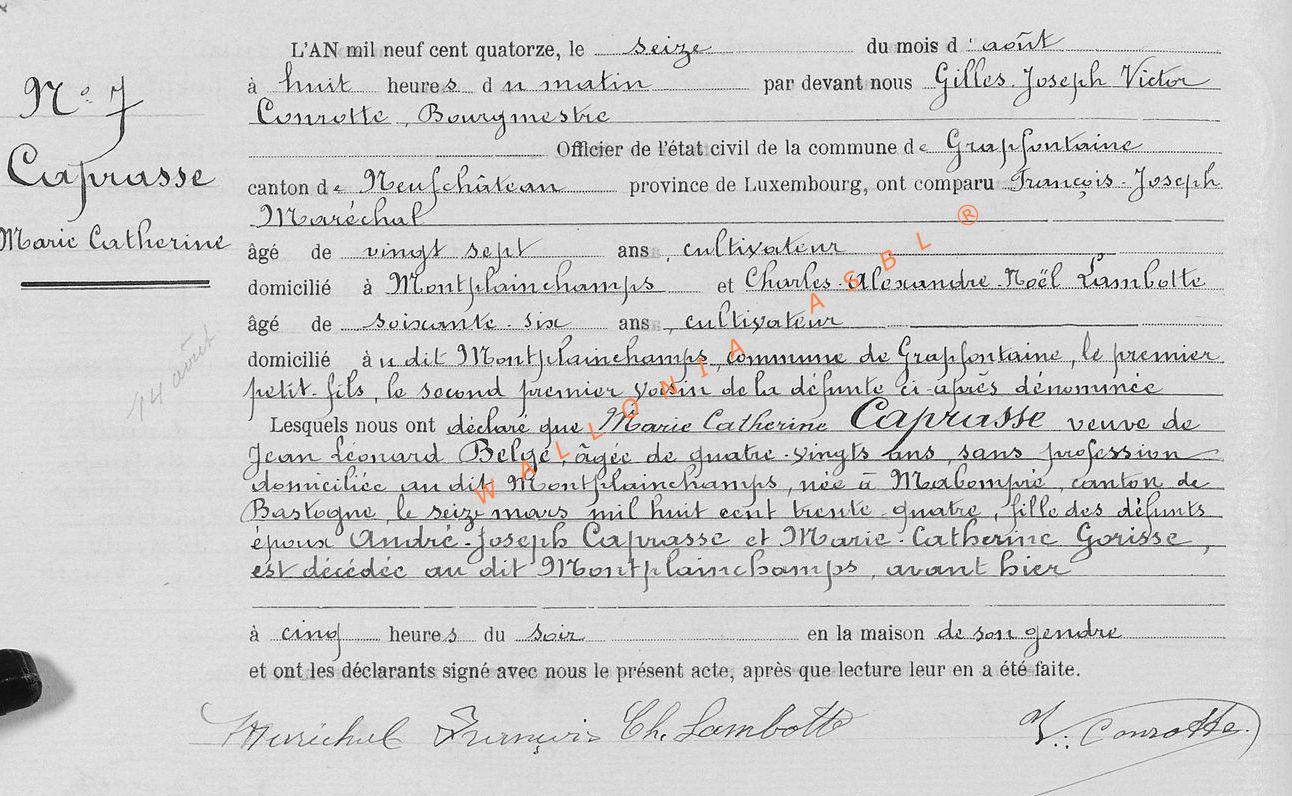 L'AN mil neuf cent quatorze, le seize du mois d'août
à huit heures du matin par devant nous Gilles Joseph Victor
Conrotte, Bourgmestre
Officier de l'état civil de la commune de Grapfontaine
canton de Neufchâteau province de Luxembourg, ont comparu François-Joseph
Maréchal
âgé de vingt sept ans, cultivateur
domicilié à Montplainchamps et Charles-Alexandre-Noël Lambotte
âgé de soixante-six ans, cultivateur
domicilié à u dit Montplainchamps, commune de Grapfontaine, le premier
petit-fils, le second premier voisin de la défunte ci-après dénommée
Lesquels nous ont déclaré que Marie Catherine Caprasse veuve de
Jean Léonard Belge, âgée de quatre-vingts ans, sans profession
domiciliée au dit Montplainchamps, née à Mabompré, canton de
Bastogne, le seize mars mil huit cent trente-quatre, fille des défunts
époux André-Joseph Caprasse et Marie-Catherine Gorisse,
est décédée au dit Montplainchamps, avant hier
à cinq heures du soir en la maison de son gendre
et ont les déclarants signé avec nous le présent acte, après que lecture leur en a été faite.
Maréchal François Ch. Lambotte V. Conrotte
No 7
Caprasse
Marie Catherine
14 août
WALLONIA ASBL ®